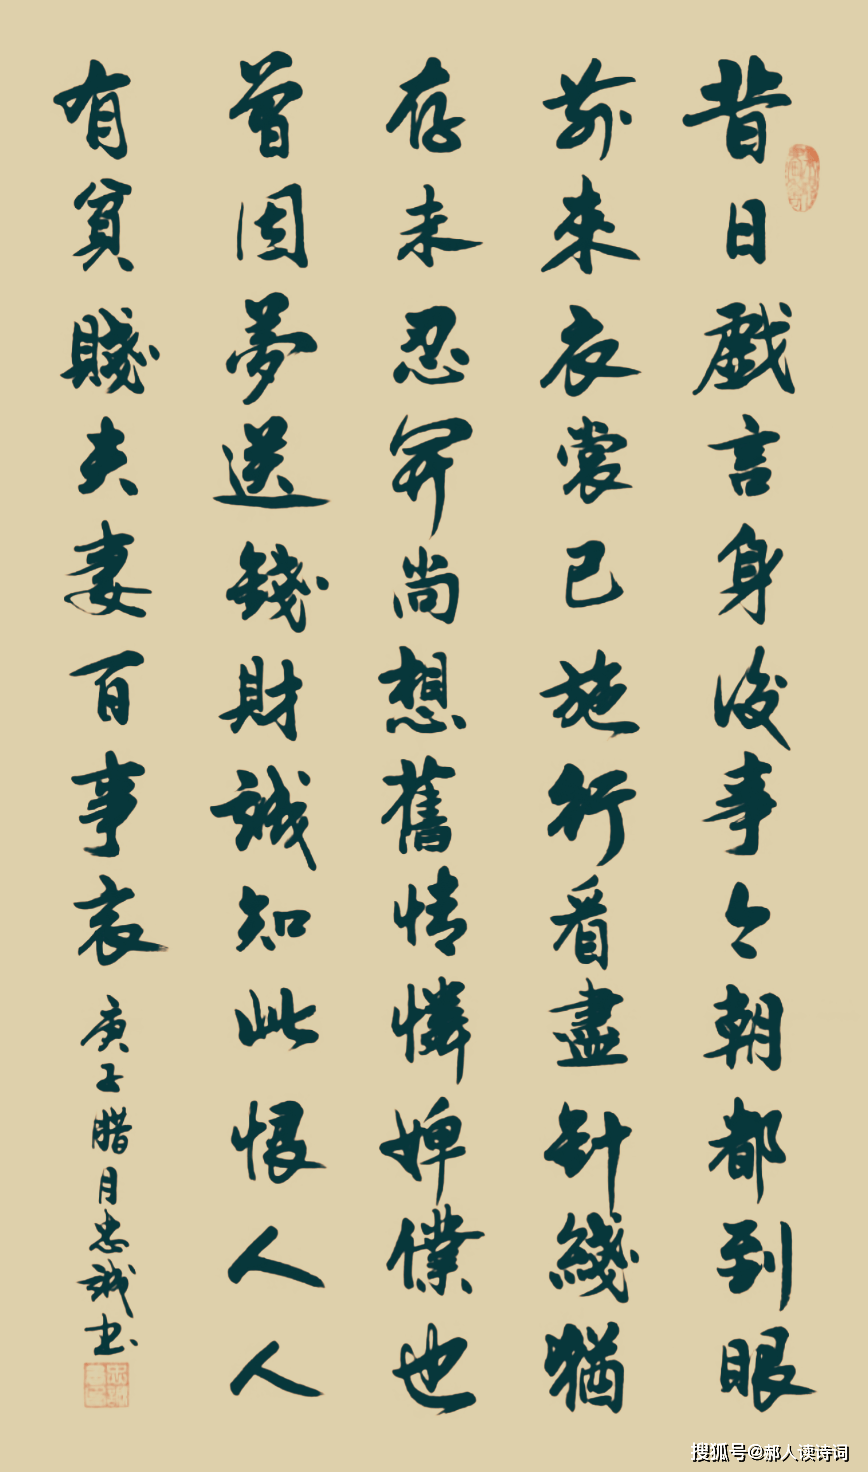 昔日戲言身後事今朝都到眼
前來衣裳已施行看盡針綫猶
存未忍開尚想舊情憐婢僕也
曾因夢送錢財誠知此恨人人
有貧賤夫妻百事哀
庚子腊月忠誠书
搜狐号@郝人读诗词